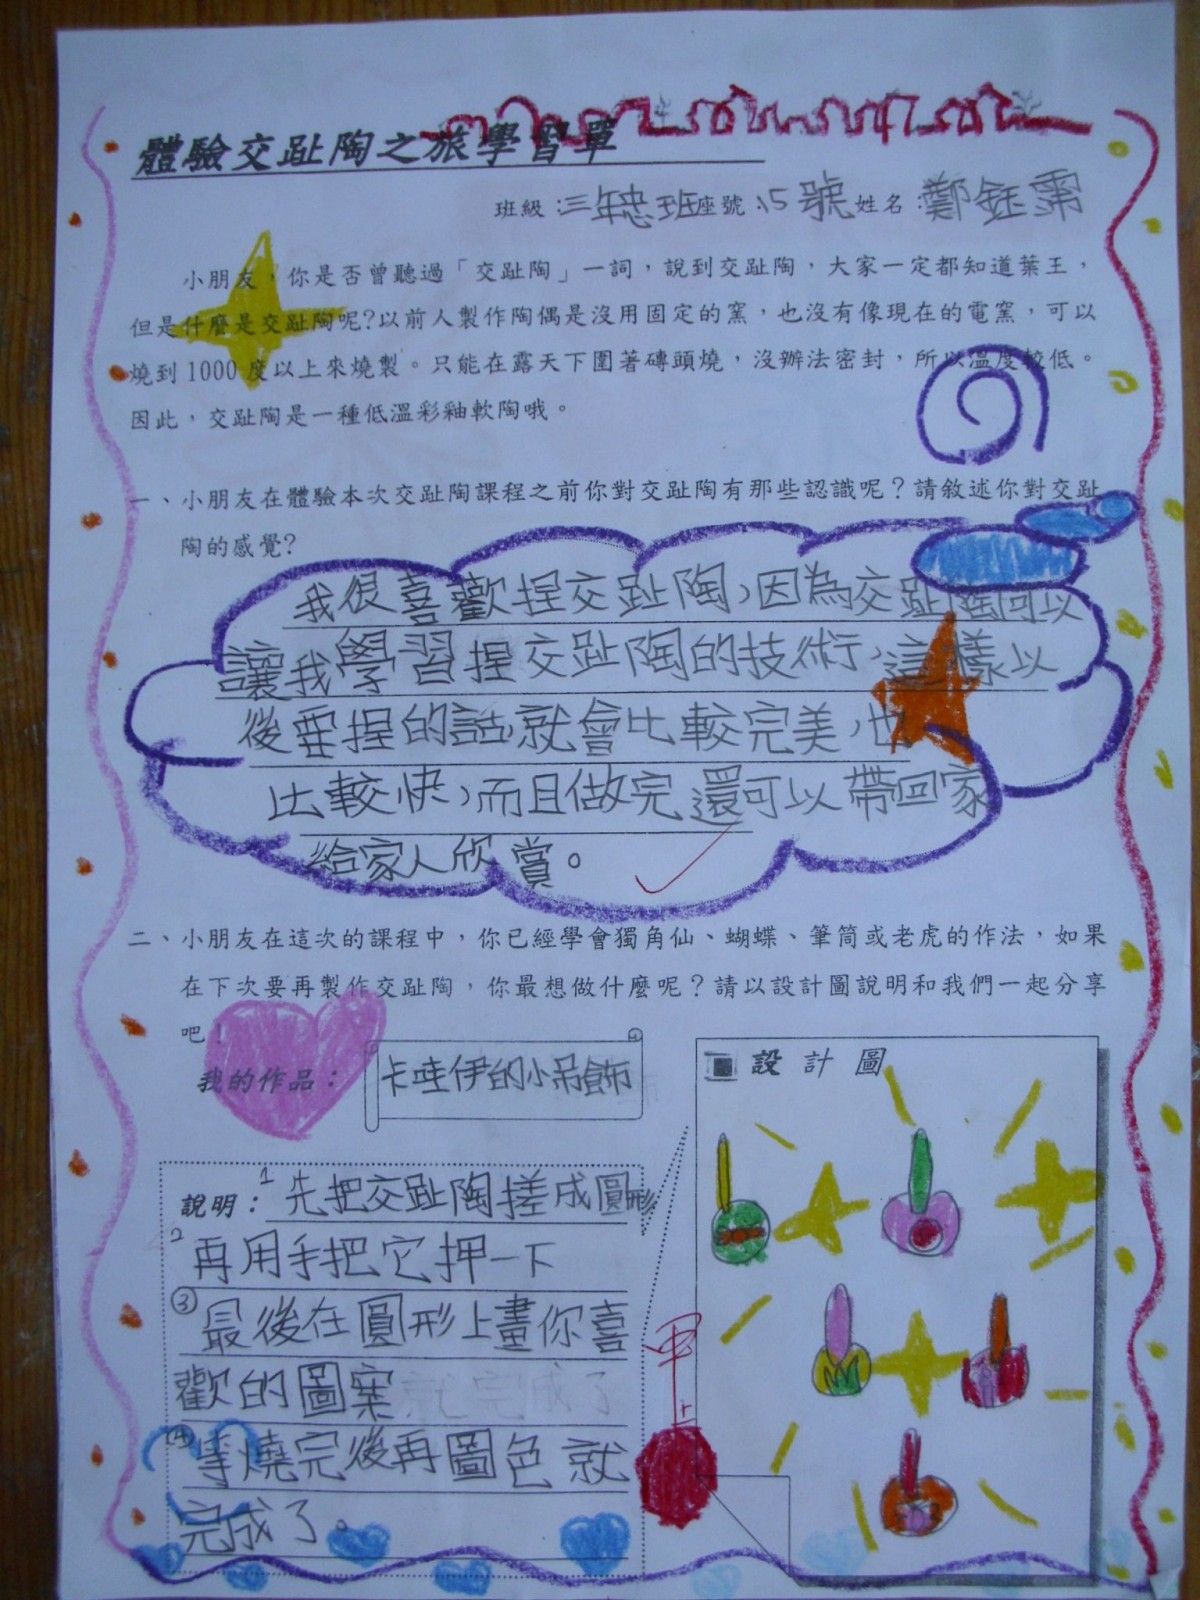 體驗交趾陶之旅學習單
班級：三年忠班座號：15號姓名：鄭鈺霈
小朋友，你是否曾聽過「交趾陶」一詞，說到交趾陶，大家一定都知道葉王，
但是什麼是交趾陶呢?以前人製作陶偶是沒用固定的窯，也沒有像現在的電窯，可以
燒到1000度以上來燒製。只能在露天下圍著磚頭燒，沒辦法密封，所以溫度較低。
因此，交趾陶是一種低溫彩釉軟陶哦。
一、小朋友在體驗本次交趾陶課程之前你對交趾陶有那些認識呢？請敘述你對交趾
陶的感覺?
我很喜歡捏交趾陶，因為交趾陶可以
讓我學習捏交趾陶的技術，這樣以
後要捏的話，就會比較完美，也
比較快，而且做完還可以帶回家
給家人欣賞。
二、小朋友在這次的課程中，你已經學會獨角仙、蝴蝶、筆筒或老虎的作法，如果
在下次要再製作交趾陶，你最想做什麼呢？請以設計圖說明和我們一起分享
吧！
我的作品：卡哇伊的小吊飾
說明：1先把交趾陶搓成圓形
2再用手把它押一下
③最後在圓形上畫你喜
歡的圖案
④等燒完後再圖色就
完成了。
設計圖
甲上